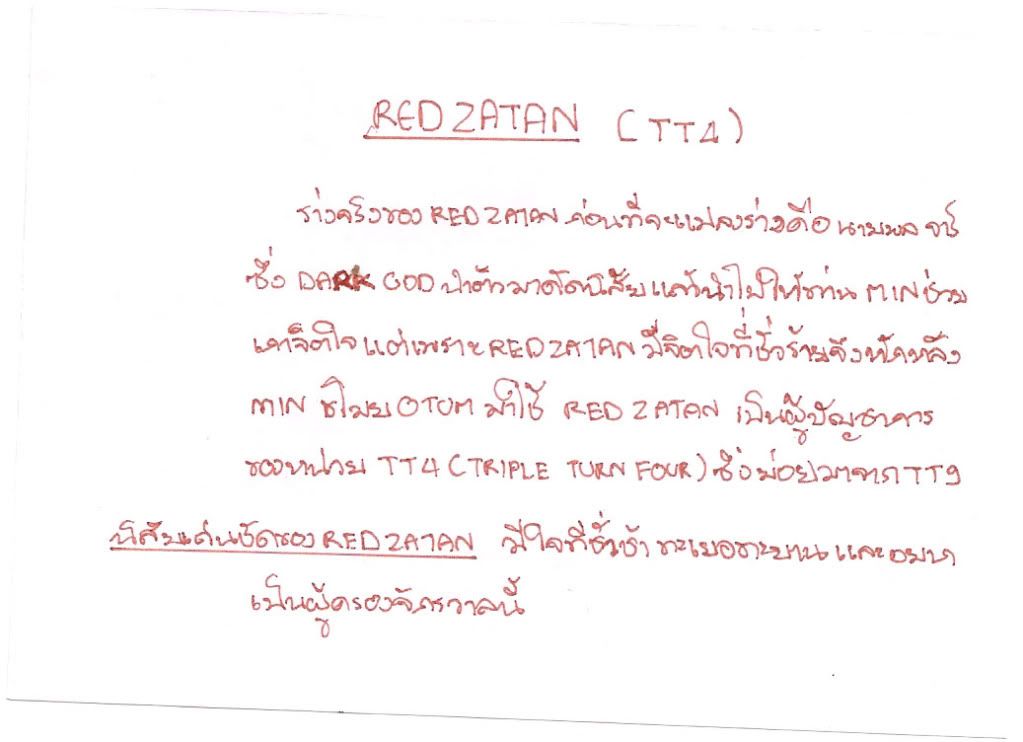 RED ZATAN (TT4)
ร่างจริงของ RED ZATAN ก่อนที่จะแปลงร่างคือ นายพล
ซึ่ง DARK GOD นำตัวมาดัดนิสัย แล้วนำไปให้ท่าน MIN ช่วย
จิตใจ แต่เพราะ RED ZATAN มีจิตใจที่ชั่วร้ายจึงหักหลัง
MIN ขโมย OTOM มาใช้ RED ZATAN เป็นผู้บัญชาการ
ของหน่วย TT4 (TRIPLE TURN FOUR) ซึ่งย่อยมาจาก TT9
นิสัยเด่นชัดของ RED ZATAN มีใจที่ชั่วช้า ทะเยอทะยาน และอยาก
เป็นผู้ครองจักรวาลนี้